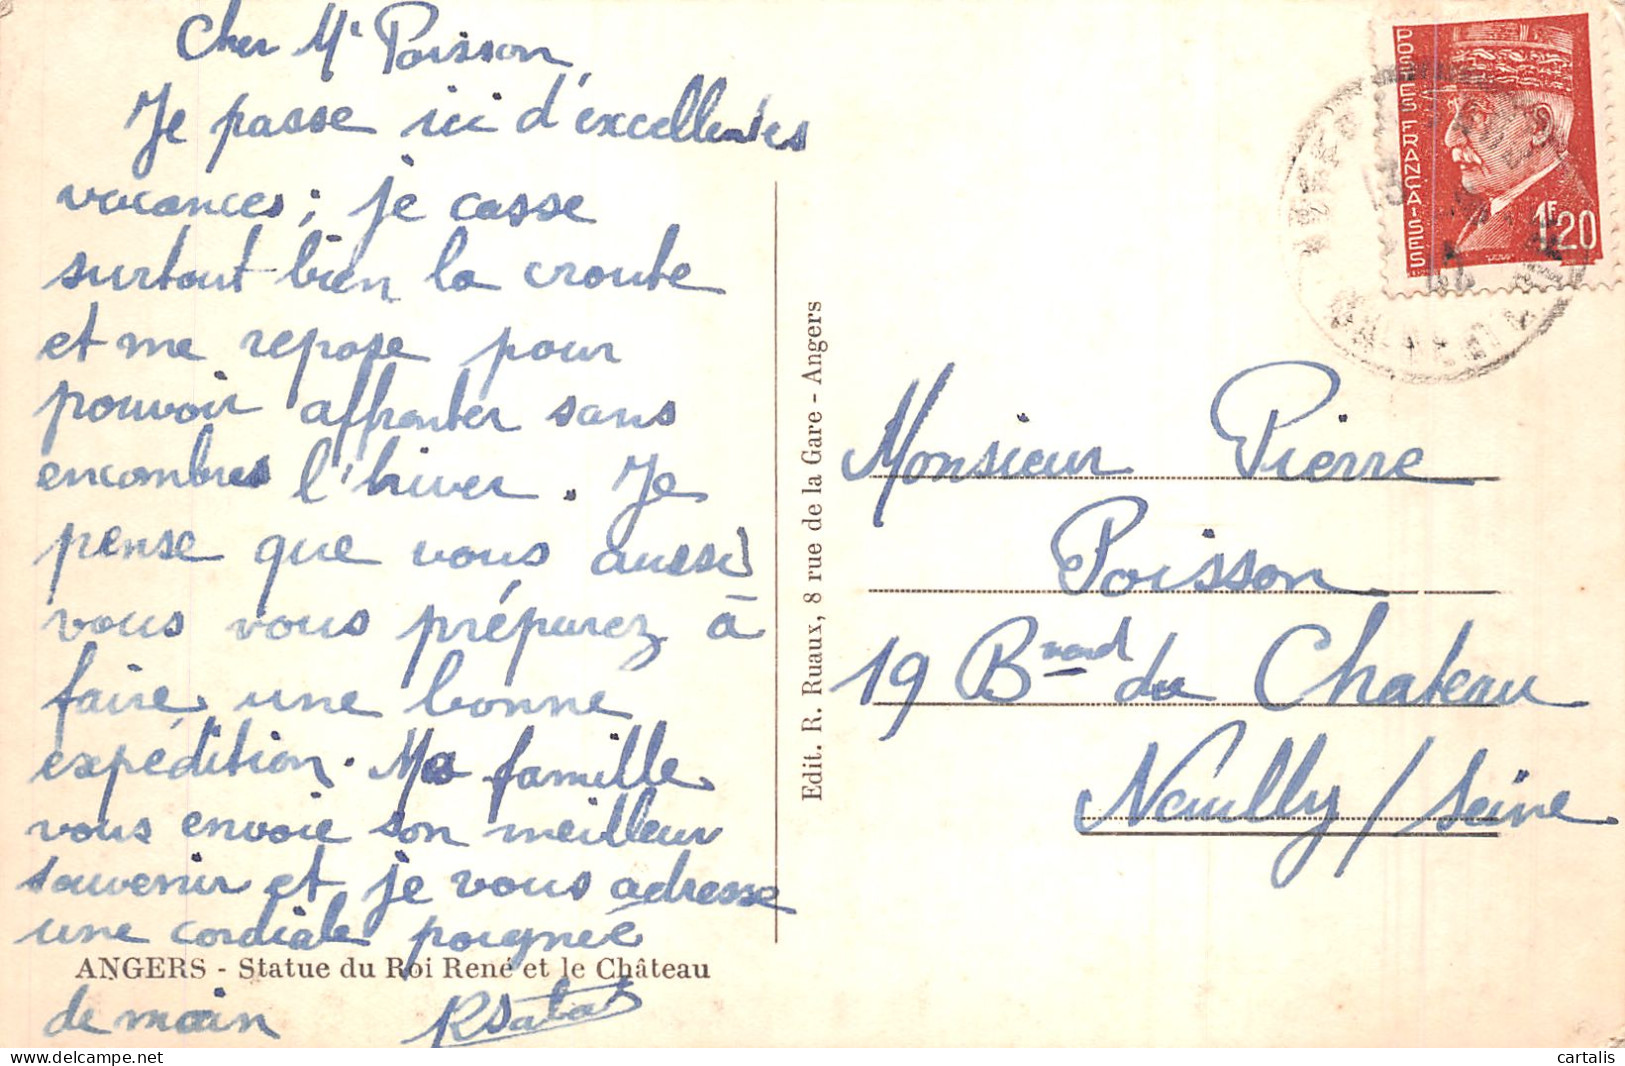 Cher Mr Poisson,
Je passe ici d'excellentes
vacances ; je casse
surtout bien la croute
et me repose pour
pouvoir affronter sans
encombres l'hiver. Je
pense que vous aussi
vous vous préparez à
faire une bonne
expédition. Ma famille
vous envoie son meilleur
souvenir et je vous adresse
une cordiale poignée
de main
ANGERS - Statue du Roi René et le Château
Edit. R. Ruaux, 8 rue de la Gare - Angers
POSTES FRANÇAISES
1F20
Monsieur Pierre
Poisson
19 Bvard du Chateau
Neuilly / Seine
cartalis
www.delcampe.net